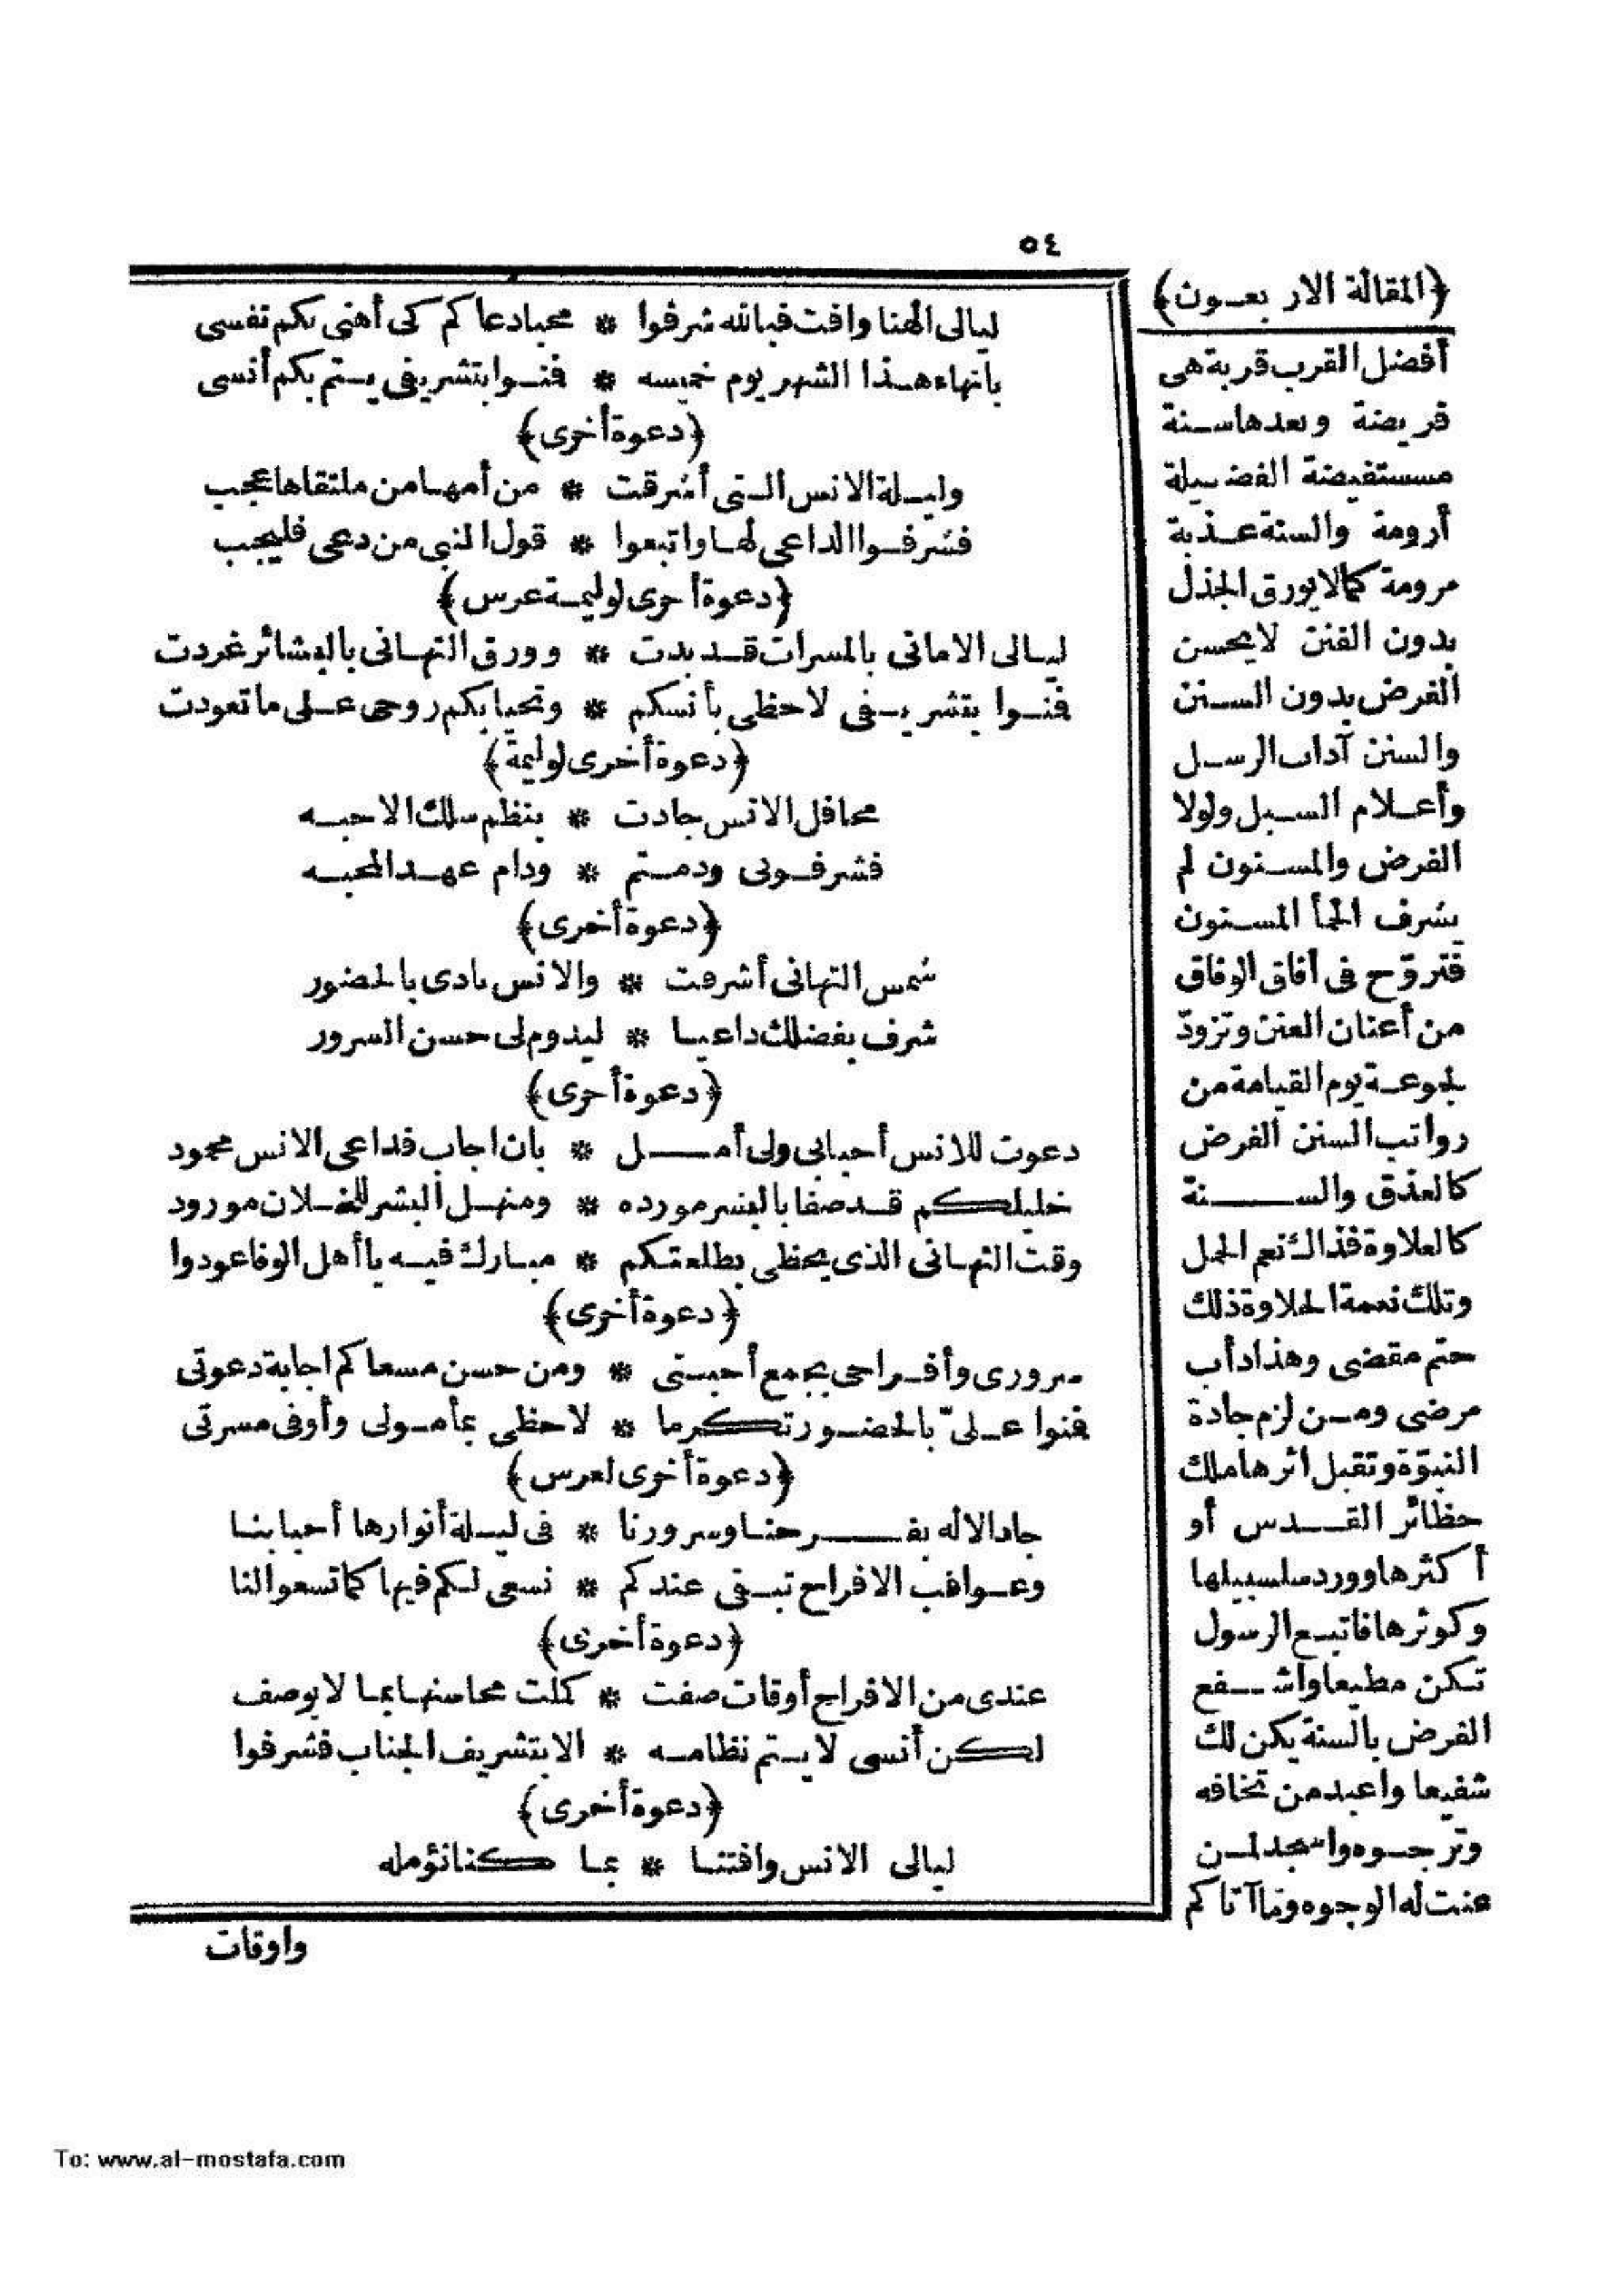 ٥٤
﴿المقالة الاربعون﴾
أفضل القرب قربة هى
فريضة وبعدها سنة
مستفيضة الفضيلة
أرومة والسنة عذبة
مرومة كمالا يورق الجذل
بدون الفنن لا يحسن
الفرض بدون السنن
والسنن آداب الرسل
وأعلام السبل ولولا
الفرض والمسنون لم
يشرف الحمأ المسنون
فتروّح فى آفاق الوفاق
من أعنان العنن وتزودّ
لجوعة يوم القيامة من
رواتب السنن الفرض
كالعذق والسنة
كالعلاوة فذاك نعم الحمل
وتلك نعمة الحلاوة ذلك
حتم مقضى وهذا دأب
مرضى ومن لزم جادة
النبوّة وتقبل اثرها ملك
حظائر القدس أو
أكثرها وورد سلسبيلها
وكوثرها فاتبع الرسول
تكن مطيعا واشفع
الفرض بالسنة يكن لك
شفيعا واعبد من تخافه
وترجوه واسجد لمن
عنت له الوجوه وما آتاكم
ليالى الهنا وافت فبالله شرفوا * محبا دعاكم كى أهنى بكم نفسى
بانهاء هذا الشهر يوم خميسه * فنوا بتشريفى يستم بكم أنسى
﴿دعوة أخرى﴾
وليلة الانس التى أشرقت * من أمها من ملتقاها عجب
فشرفوا الداعى لها واتبعوا * قول النبى من دعى فليجب
﴿دعوة أخرى لوليمة عرس﴾
ليالى الامانى بالمسرات قد بدت * وورق التهانى بالبشائر غردت
فنوا بتشريفى لاحظى بأنسكم * وتحيا بكم روحى على ما تعودت
﴿دعوة أخرى لوليمة﴾
محافل الانس جادت * بنظم سلك الاحبه
فشرفونى ودمتم * ودام عهد المحبه
﴿دعوة أخرى﴾
شمس التهانى أشرقت * والانس نادى بالحضور
شرف بفضلك داعيا * ليدوم لى حسن السرور
﴿دعوة أخرى﴾
دعوت للانس أحبابى ولى أمل * بان اجاب فداعى الانس محمود
خليلكم قد صفا بالبشر مورده * ومنهل البشر للخلان مورود
وقت التهانى الذى يحظى بطلعتكم * مبارك فيه يا أهل الوفا عودوا
﴿دعوة أخرى﴾
سرورى وأفراحى بجمع أحبتى * ومن حسن مسعاكم اجابة دعوتى
فنوا علىّ بالحضور تكرما * لاحظى بمأمولى وأوفى مسرتى
﴿دعوة أخرى لعرس﴾
جاد الاله بفرحنا وسرورنا * فى ليلة أنوارها أحبابنا
وعواقب الافراح تبقى عندكم * نسعى لكم فيها كما تسعوا لنا
﴿دعوة أخرى﴾
عندى من الافراح أوقات صفت * كملت محاسنها بما لا يوصف
لكن أنسى لا يستم نظامه * الا بتشريف الجناب فشرفوا
﴿دعوة أخرى﴾
ليالى الانس وافتنا * بما كنا نؤمله
واوقات
To: www.al-mostafa.com